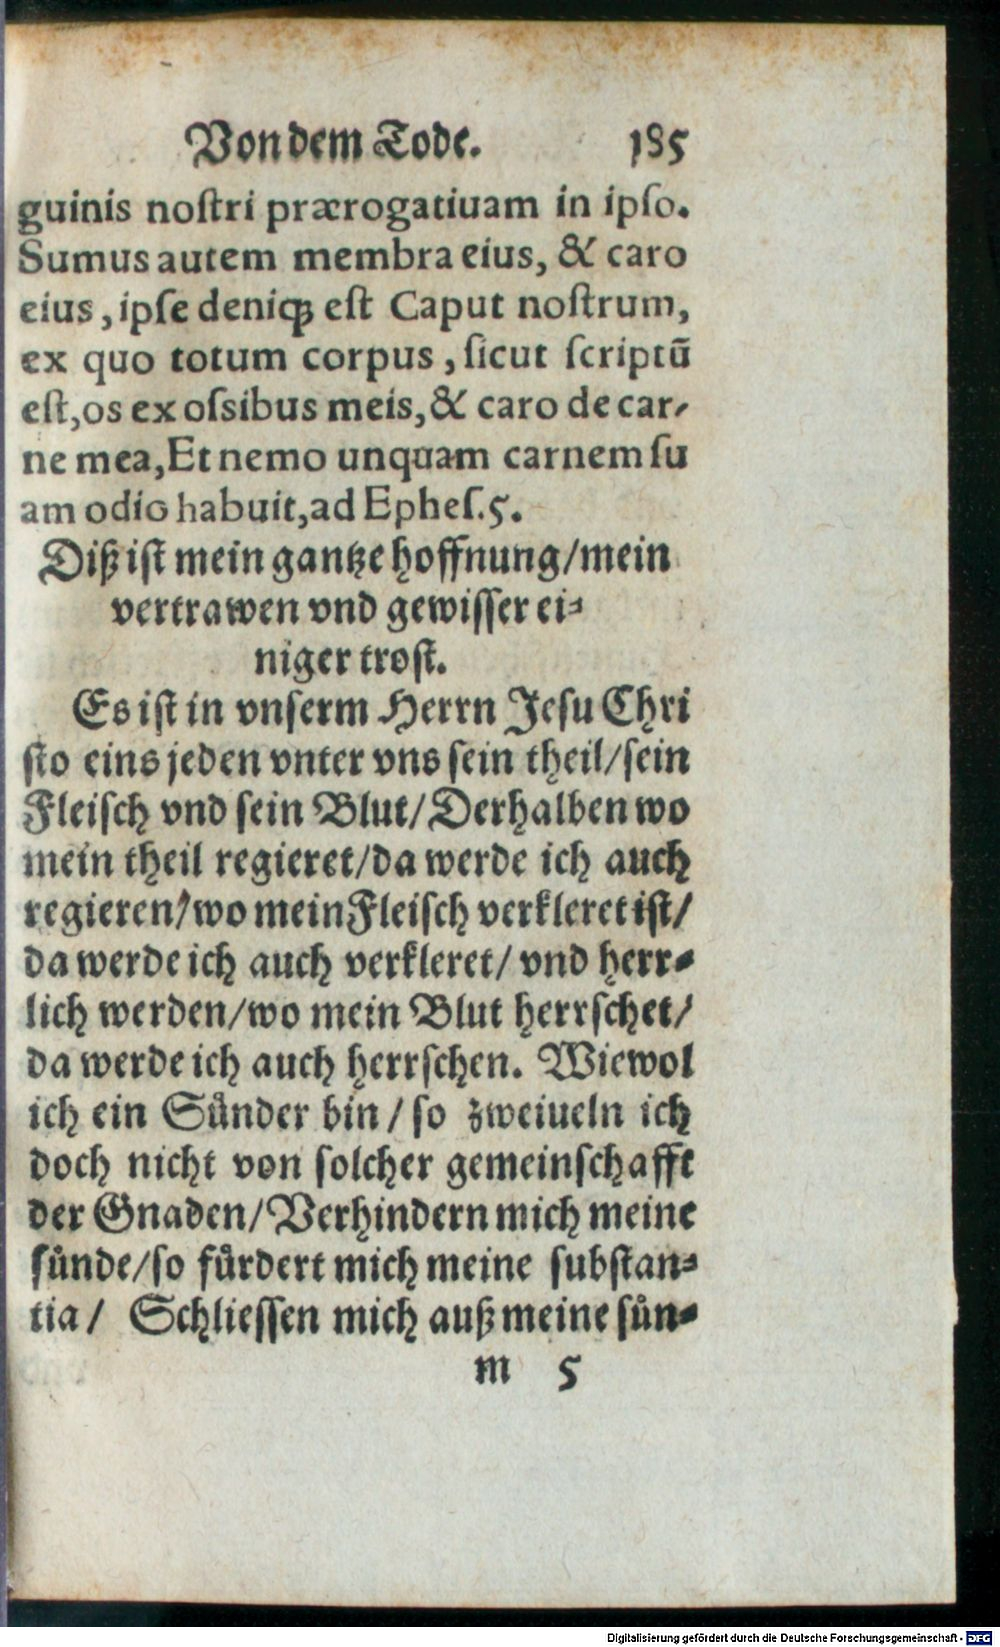 Von dem Tode. 185
guinis nostri prærogatiuam in ipso.
Sumus autem membra eius, & caro
eius, ipse deniqꝫ est Caput nostrum,
ex quo totum corpus, sicut scriptū
est, os ex ossibus meis, & caro de car-
ne mea, Et nemo unquam carnem su
am odio habuit, ad Ephes. 5.
Diß ist mein gantze hoffnung/mein
vertrawen vnd gewisser ei-
niger trost.
Es ist in vnserm Herrn Jesu Chri
sto eins jeden vnter vns sein theil/sein
Fleisch vnd sein Blut/Derhalben wo
mein theil regieret/da werde ich auch
regieren/wo mein Fleisch verkleret ist/
da werde ich auch verkleret/ vnd herr-
lich werden/wo mein Blut herrschet/
da werde ich auch herrschen. Wiewol
ich ein Sůnder bin/ so zweiueln ich
doch nicht von solcher gemeinschafft
der Gnaden/Verhindern mich meine
sůnde/so fůrdert mich meine substan-
tia/ Schliessen mich auß meine sůn-
m 5
Digitalisierung gefördert durch die Deutsche Forschungsgemeinschaft - DFG